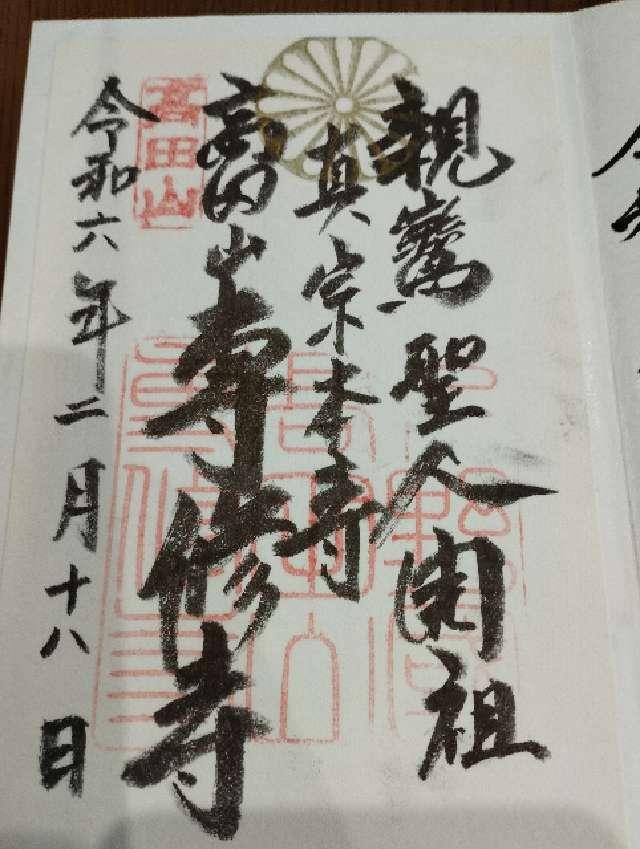 親鸞聖人開祖
真宗本寺
高田山専修寺
高田山
令和六年二月十八日